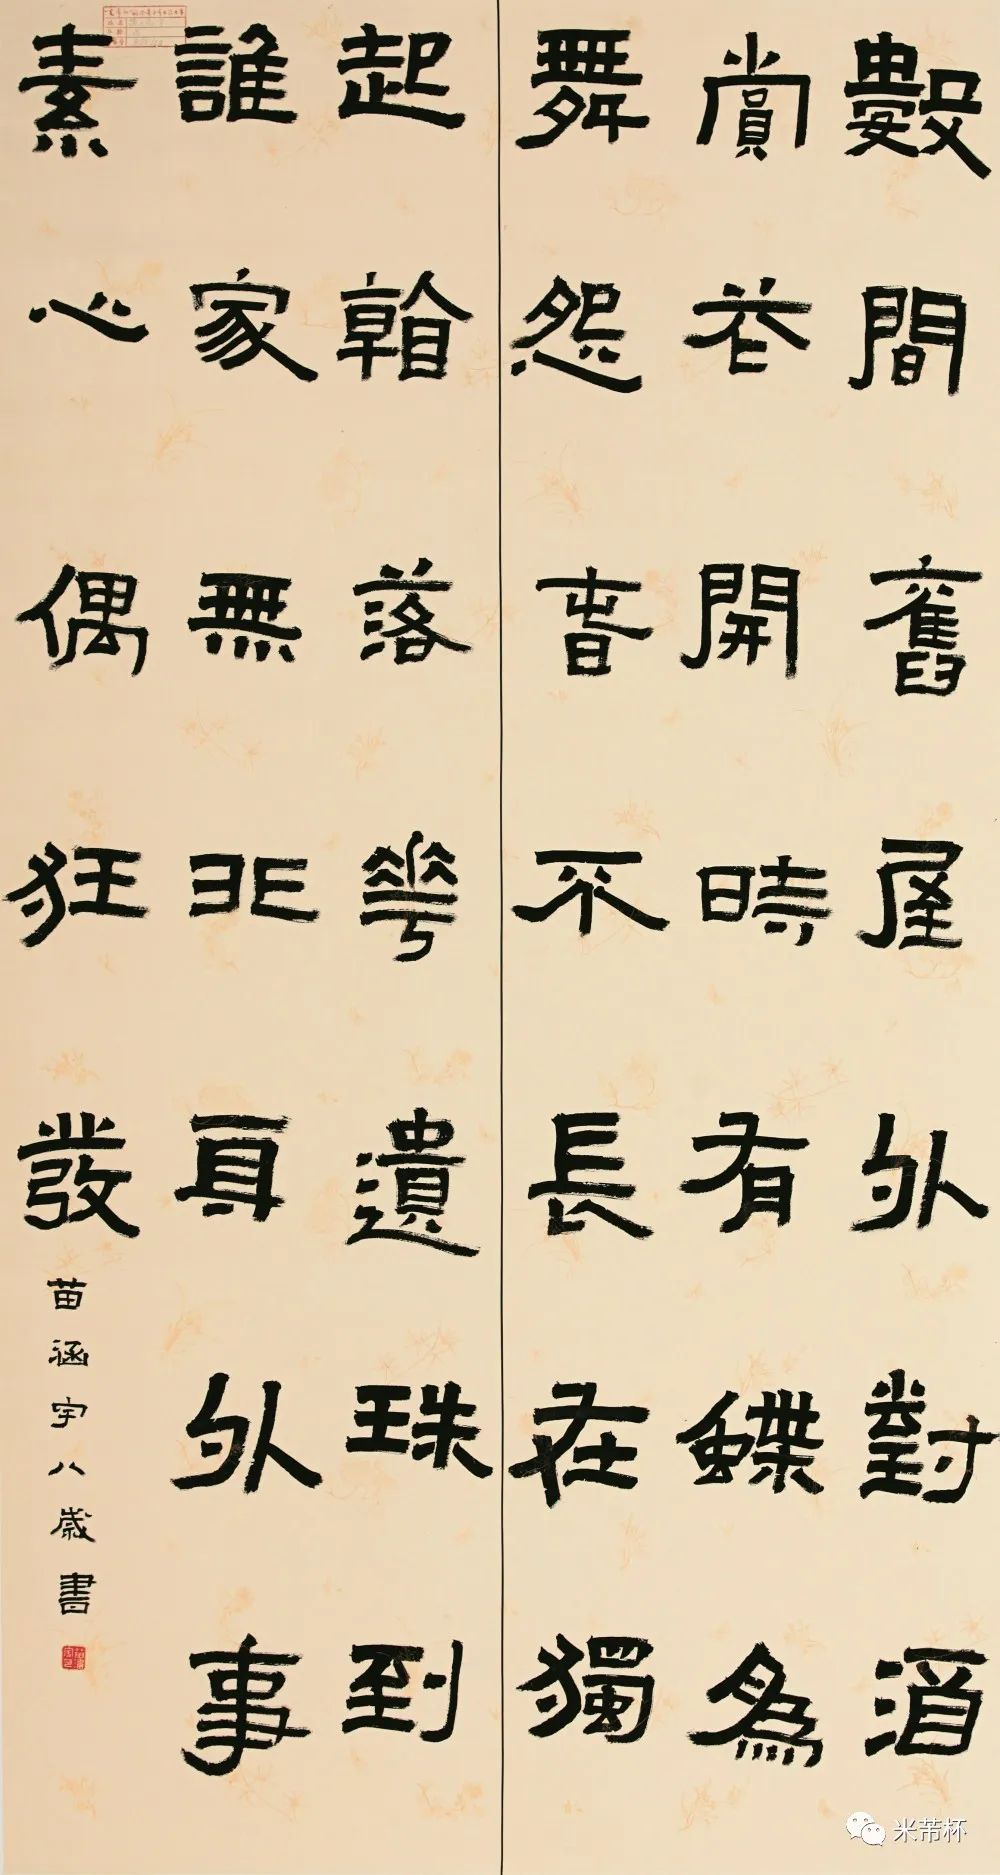 數間舊屋外對酒
賞花開時有蝶為
舞怨春不長在獨
起朝落華遺珠到
誰家無非耳外事
素心偶狂發
苗涵宇八歲書
米芾杯